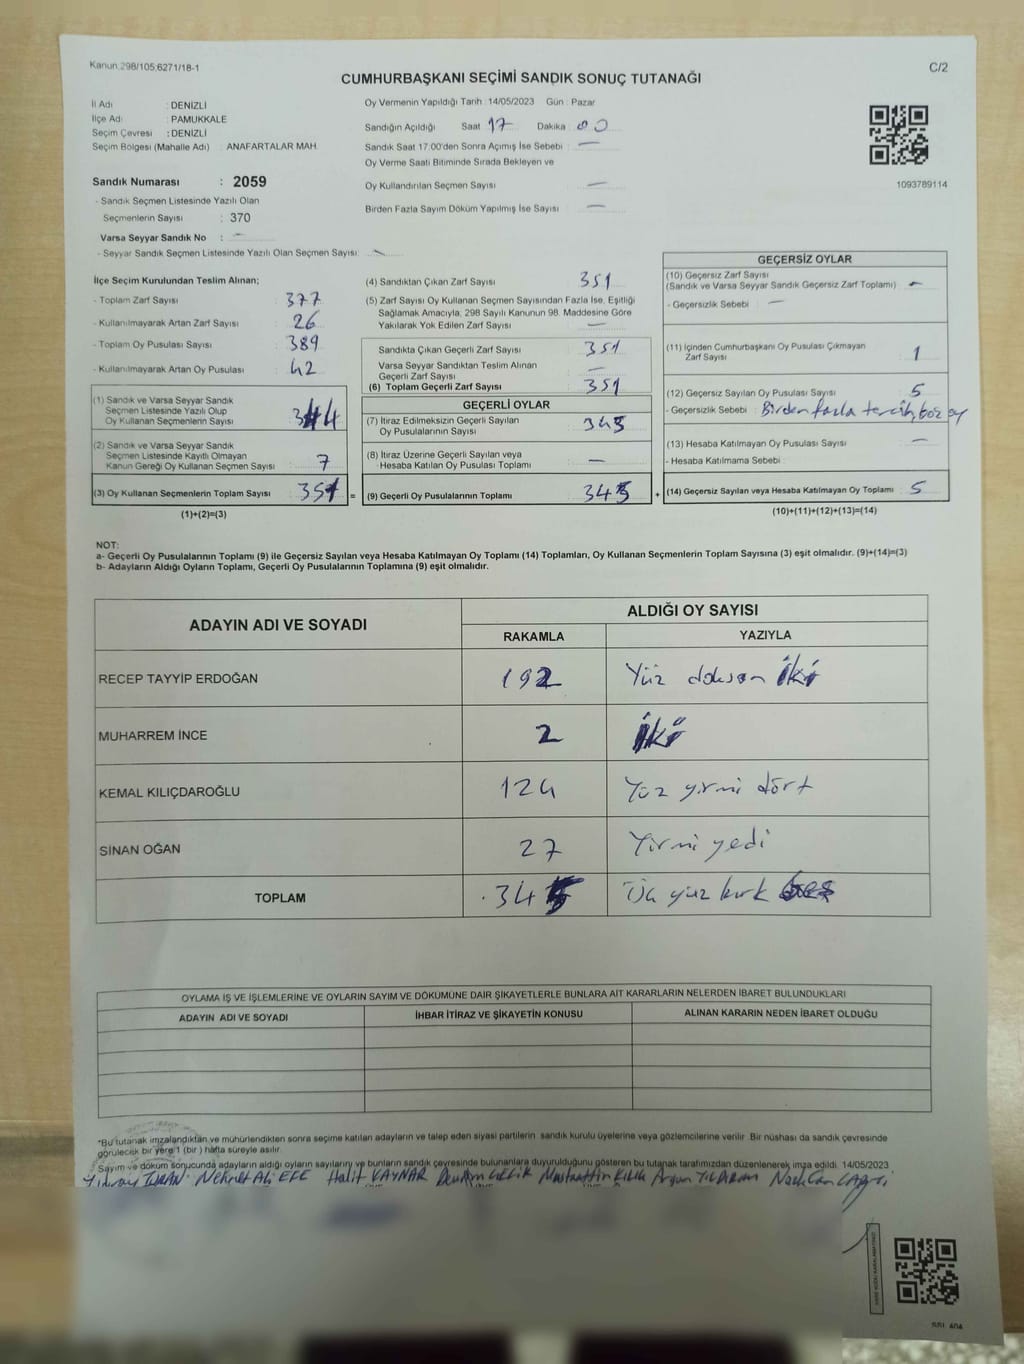 Kanun 298/105,6271/18-1
C/2
CUMHURBAŞKANI SEÇİMİ SANDIK SONUÇ TUTANAĞI
İl Adı : DENİZLİ
İlçe Adı : PAMUKKALE
Seçim Çevresi : DENİZLİ
Seçim Bölgesi (Mahalle Adı) : ANAFARTALAR MAH.
Oy Vermenin Yapıldığı Tarih : 14/05/2023 Gün : Pazar
Sandığın Açıldığı Saat 17 Dakika 00
Sandık Saat 17:00'den Sonra Açımış İse Sebebi : —
Oy Verme Saati Bitiminde Sırada Bekleyen ve
Oy Kullandırılan Seçmen Sayısı —
Birden Fazla Sayım Döküm Yapılmış İse Sayısı —
1093789114
Sandık Numarası : 2059
- Sandık Seçmen Listesinde Yazılı Olan
Seçmenlerin Sayısı : 370
Varsa Seyyar Sandık No : —
- Seyyar Sandık Seçmen Listesinde Yazılı Olan Seçmen Sayısı: —
İlçe Seçim Kurulundan Teslim Alınan;
- Toplam Zarf Sayısı : 377
- Kullanılmayarak Artan Zarf Sayısı : 26
- Toplam Oy Pusulası Sayısı : 389
- Kullanılmayarak Artan Oy Pusulası : 42
(1) Sandık ve Varsa Seyyar Sandık
Seçmen Listesinde Yazılı Olup
Oy Kullanan Seçmenlerin Sayısı : 344
(2) Sandık ve Varsa Seyyar Sandık
Seçmen Listesinde Kayıtlı Olmayan
Kanun Gereği Oy Kullanan Seçmen Sayısı : 7
(3) Oy Kullanan Seçmenlerin Toplam Sayısı : 351 =
(1)+(2)=(3)
(4) Sandıktan Çıkan Zarf Sayısı 351
(5) Zarf Sayısı Oy Kullanan Seçmen Sayısından Fazla İse, Eşitliği
Sağlamak Amacıyla, 298 Sayılı Kanunun 98. Maddesine Göre
Yakılarak Yok Edilen Zarf Sayısı : —
Sandıkta Çıkan Geçerli Zarf Sayısı : 351
Varsa Seyyar Sandıktan Teslim Alınan
Geçerli Zarf Sayısı : —
(6) Toplam Geçerli Zarf Sayısı : 351
GEÇERLİ OYLAR
(7) İtiraz Edilmeksizin Geçerli Sayılan
Oy Pusulalarının Sayısı : 345
(8) İtiraz Üzerine Geçerli Sayılan veya
Hesaba Katılan Oy Pusulası Toplamı : —
(9) Geçerli Oy Pusulalarının Toplamı : 345 +
GEÇERSİZ OYLAR
(10) Geçersiz Zarf Sayısı
(Sandık ve Varsa Seyyar Sandık Geçersiz Zarf Toplamı) : —
- Geçersizlik Sebebi : —
(11) İçinden Cumhurbaşkanı Oy Pusulası Çıkmayan
Zarf Sayısı : 1
(12) Geçersiz Sayılan Oy Pusulası Sayısı : 5
- Geçersizlik Sebebi : Birden fazla tercih, boş oy
(13) Hesaba Katılmayan Oy Pusulası Sayısı : —
- Hesaba Katılmama Sebebi :
(14) Geçersiz Sayılan veya Hesaba Katılmayan Oy Toplamı : 5
(10)+(11)+(12)+(13)=(14)
NOT:
a- Geçerli Oy Pusulalarının Toplamı (9) ile Geçersiz Sayılan veya Hesaba Katılmayan Oy Toplamı (14) Toplamları, Oy Kullanan Seçmenlerin Toplam Sayısına (3) eşit olmalıdır. (9)+(14)=(3)
b- Adayların Aldığı Oyların Toplamı, Geçerli Oy Pusulalarının Toplamına (9) eşit olmalıdır.
ADAYIN ADI VE SOYADI
ALDIĞI OY SAYISI
RAKAMLA YAZIYLA
RECEP TAYYİP ERDOĞAN 192 Yüz doksan iki
MUHARREM İNCE 2 iki
KEMAL KILIÇDAROĞLU 124 Yüz yirmi dört
SİNAN OĞAN 27 Yirmi yedi
TOPLAM 345 Üç yüz kırk beş
OYLAMA İŞ VE İŞLEMLERİNE VE OYLARIN SAYIM VE DÖKÜMÜNE DAİR ŞİKAYETLERLE BUNLARA AİT KARARLARIN NELERDEN İBARET BULUNDUKLARI
ADAYIN ADI VE SOYADI İHBAR İTİRAZ VE ŞİKAYETİN KONUSU ALINAN KARARIN NEDEN İBARET OLDUĞU
*Bu tutanak imzalandıktan ve mühürlendikten sonra seçime katılan adayların ve talep eden siyasi partilerin sandık kurulu üyelerine veya gözlemcilerine verilir. Bir nüshası da sandık çevresinde
görülecek bir yere 1 (bir) hafta süreyle asılır.
Sayım ve döküm sonucunda adayların aldığı oyların sayılarını ve bunların sandık çevresinde bulunanlara duyurulduğunu gösteren bu tutanak tarafımızdan düzenlenerek imza edildi. 14/05/2023
TURAN Mehmet Ali EFE Halit KAYNAR ÇELİK KILIÇ YILDIRIM